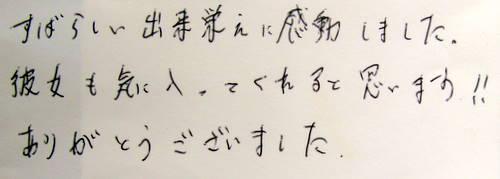 すばらしい出来栄えに感動しました。
彼女も気に入ってくれると思います!!
ありがとうございました.